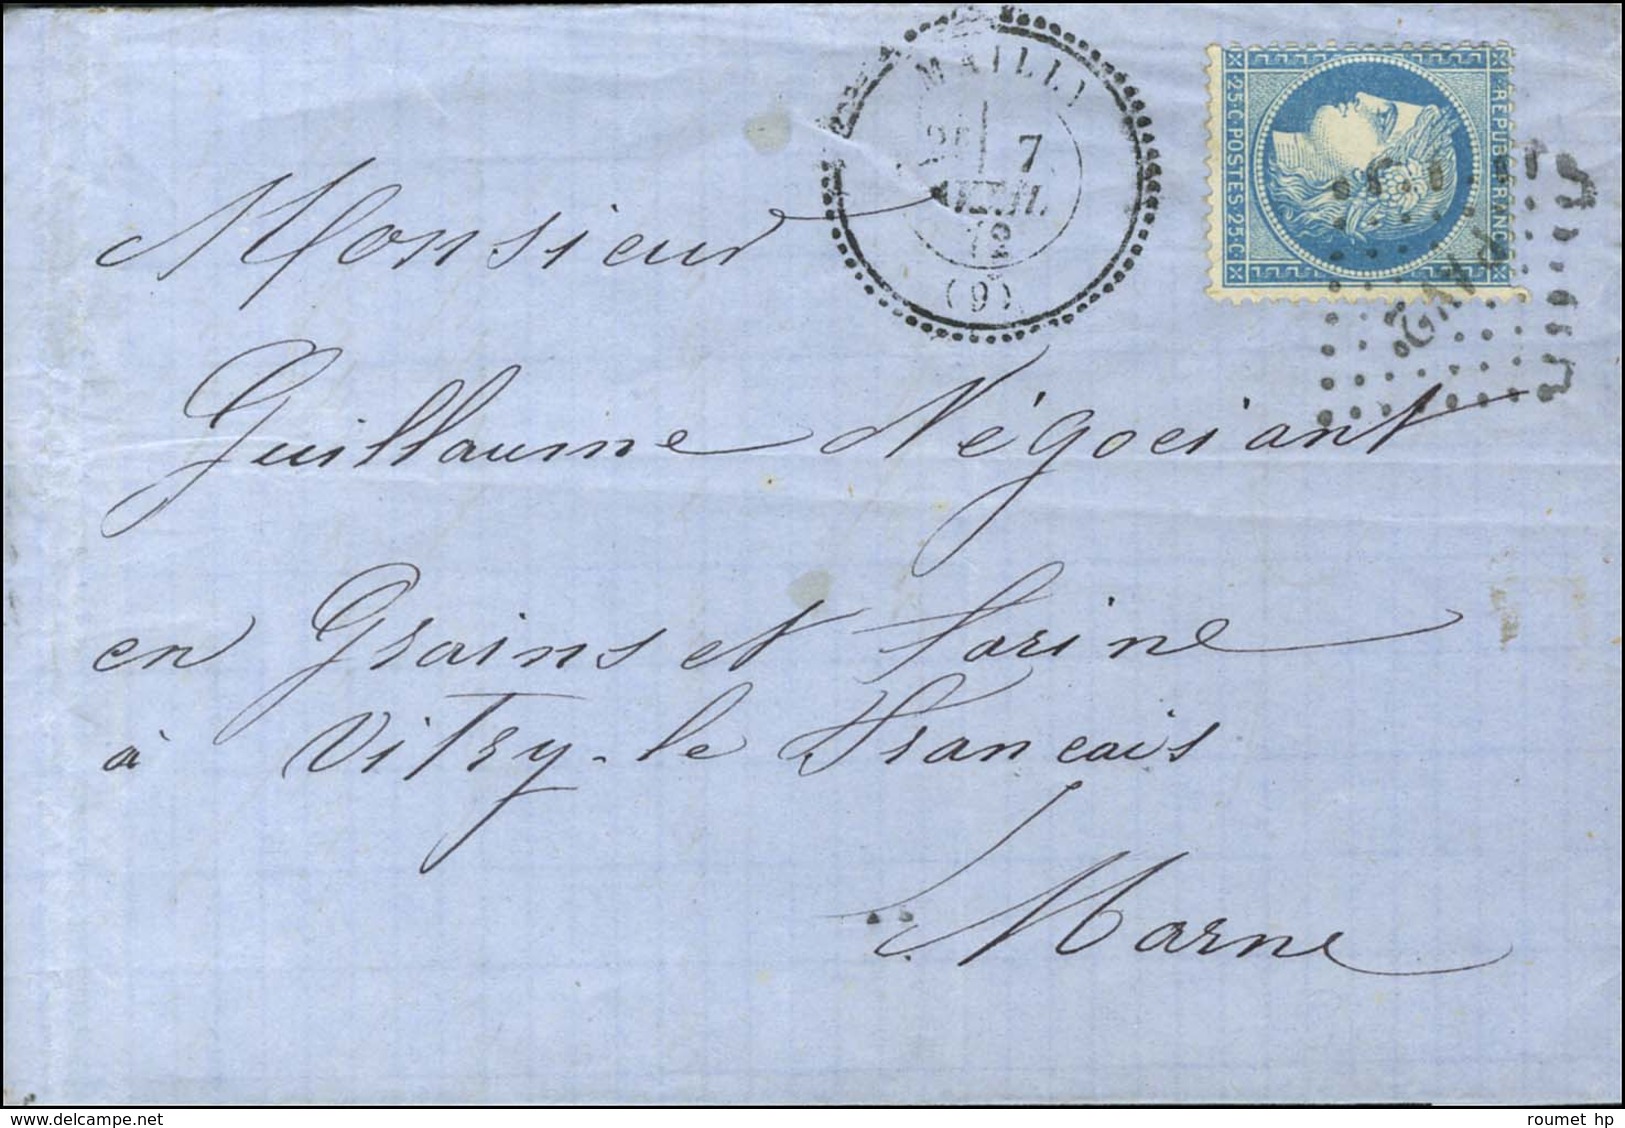 MAILLY
2E 7
AVRIL
72
(9)
25 C. POSTES 25 C.
REPUB FRANC
Monsieur
Guillaume Négociant
en Grains et farine
à Vitry-le Français
Marne
delcampe.net
roumet hp